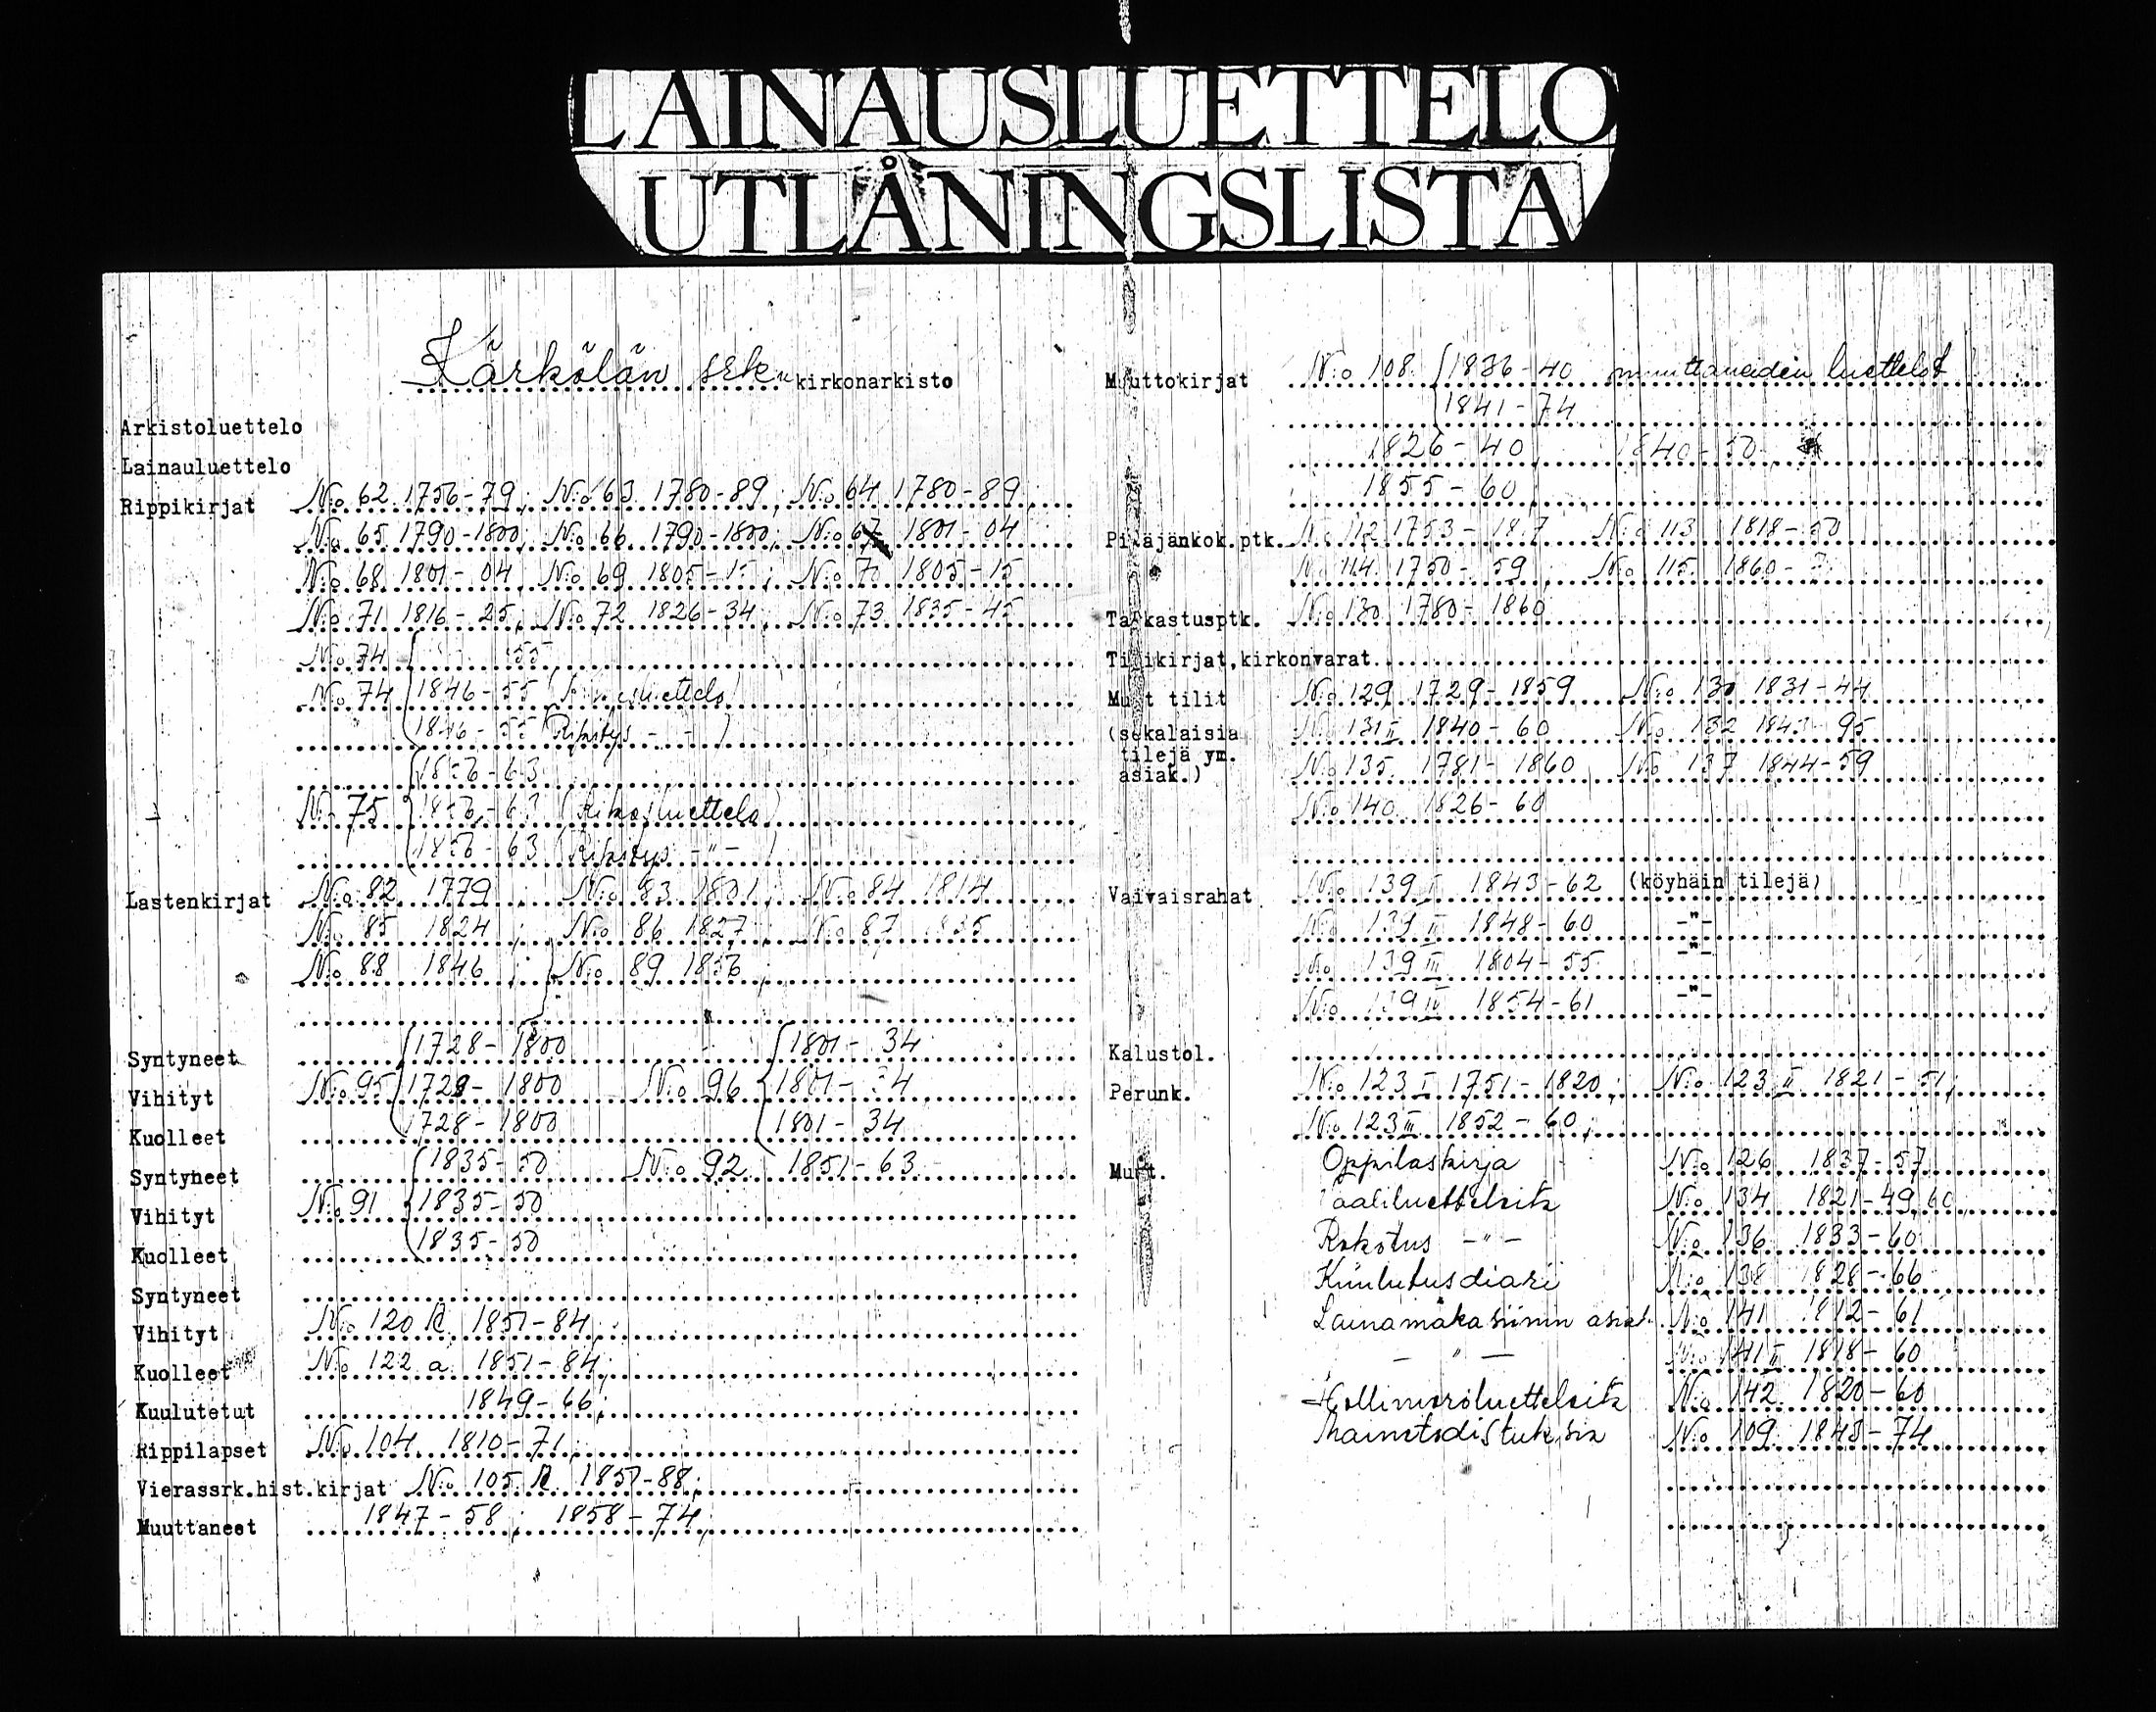 LAINAUSLUETTELO
UTLÅNINGSLISTA
Kärkölän srk:n kirkonarkisto
Arkistoluettelo
Lainauluettelo
Rippikirjat N:o 62 1756-79; N:o 63 1780-89; N:o 64 1780-89;
N:o 65 1790-1800; N:o 66 1790-1800; N:o 67 1801-04
N:o 68 1801-04, N:o 69 1805-15; N:o 70 1805-15
N:o 71 1816-25, N:o 72 1826-34; N:o 73 1835-45
N:o 74 55
N:o 74 1846-55
1846-55 (Ripitys - " - )
1856-63
N:o 75 1856-63 (Rikosluettelo)
1856-63 (Ripitys - " - )
Lastenkirjat N:o 82 1779, N:o 83 1801, N:o 84 1814
N:o 85 1824, N:o 86 1827, N:o 87 1835
N:o 88 1846, N:o 89 1856,
Syntyneet 1728-1800 1801-34
Vihityt N:o 95 1728-1800 N:o 96 1801-34
Kuolleet 1728-1800 1801-34
Syntyneet 1835-50 N:o 92 1851-63
Vihityt N:o 91 1835-50
Kuolleet 1835-50
Syntyneet
Vihityt N:o 120 1851-84,
Kuolleet N:o 122 a 1851-84,
Kuulutetut 1849-66,
Rippilapset N:o 104 1810-71,
Vierassrk.hist.kirjat N:o 105 1851-88;
Muuttaneet 1847-58; 1858-74,
Muuttokirjat N:o 108 1836-40 muuttaneiden luettelot
1841-74
1826-40, 1840-50,
1855-60
Pitäjänkok.ptk. N:o 112 1753-1817 N:o 113 1818-50
N:o 114 1750-59 N:o 115 1860-
Tarkastusptk. N:o 130 1780-1860
Tilikirjat,kirkonvarat.
Muut tilit N:o 129 1729-1859 N:o 130 1831-44
(sekalaisia N:o 131 II 1840-60 N:o 132 1843-95
tilejä ym.
asiak.) N:o 135 1781-1860 N:o 137 1844-59
N:o 140 1826-60
Vaivaisrahat N:o 139 I 1843-62 (köyhäin tilejä)
N:o 139 II 1848-60 -"-
N:o 139 III 1804-55 -"-
N:o 139 IV 1854-61 -"-
Kalustol.
Perunk. N:o 123 I 1751-1820; N:o 123 II 1821-51;
N:o 123 III 1852-60;
Muut. Oppilaskirja N:o 126 1837-57
N:o 134 1821-49,60,
Rokotus -"- N:o 136 1833-60
Kuulutusdiari N:o 138 1828-66
Lainamakasiinin asiat N:o 141 1812-61
- " - N:o 141 II 1818-60
N:o 142 1820-60
Mainetodistuksia N:o 109 1843-74